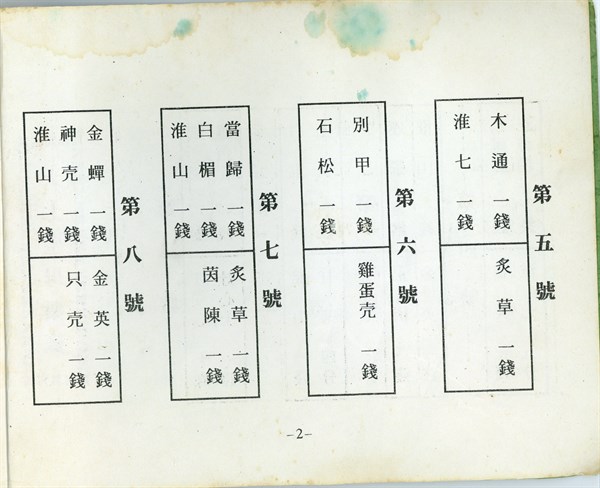 第五號
木通一錢
淮七一錢
炙草一錢
第六號
別甲一錢
石松一錢
雞蛋壳一錢
第七號
當歸一錢
白楣一錢
淮山一錢
炙草一錢
茵陳一錢
第八號
金蟬一錢
神壳一錢
淮山一錢
金英一錢
只壳一錢
-2-